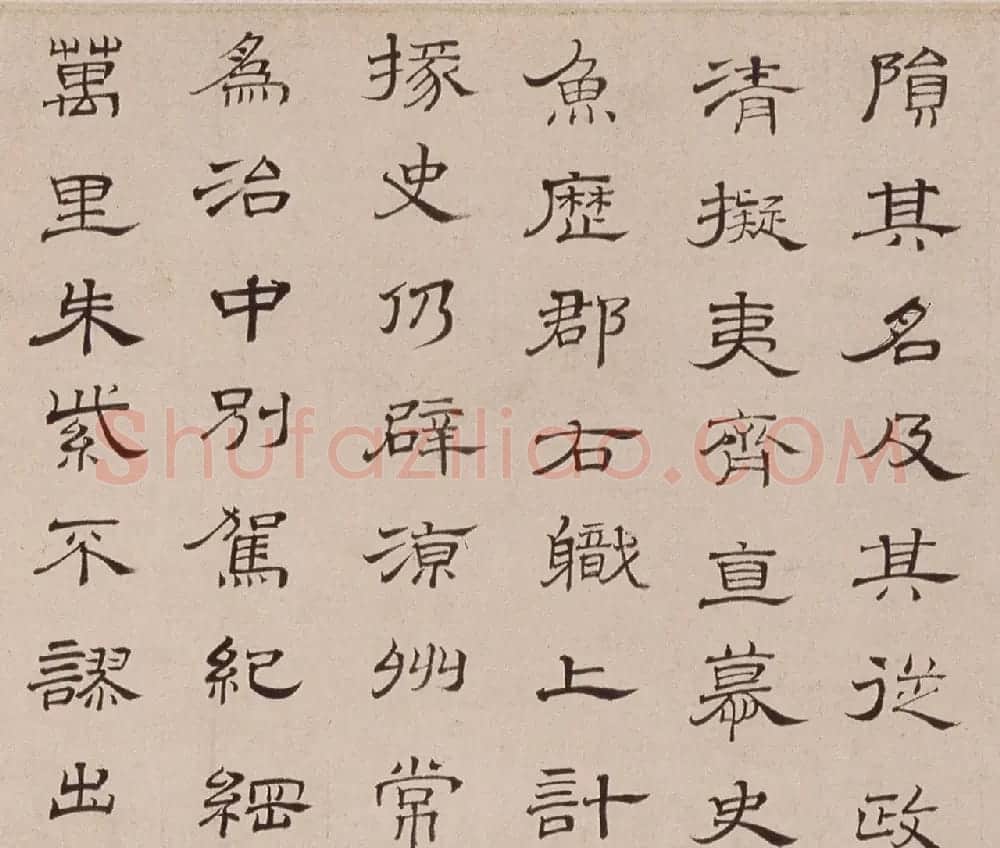 隕其名及其從政
清擬夷齊直慕史
魚歷郡右職上計
掾史仍辟涼州常
為治中別駕紀綱
萬里朱紫不謬出
Shufaziliao.COM